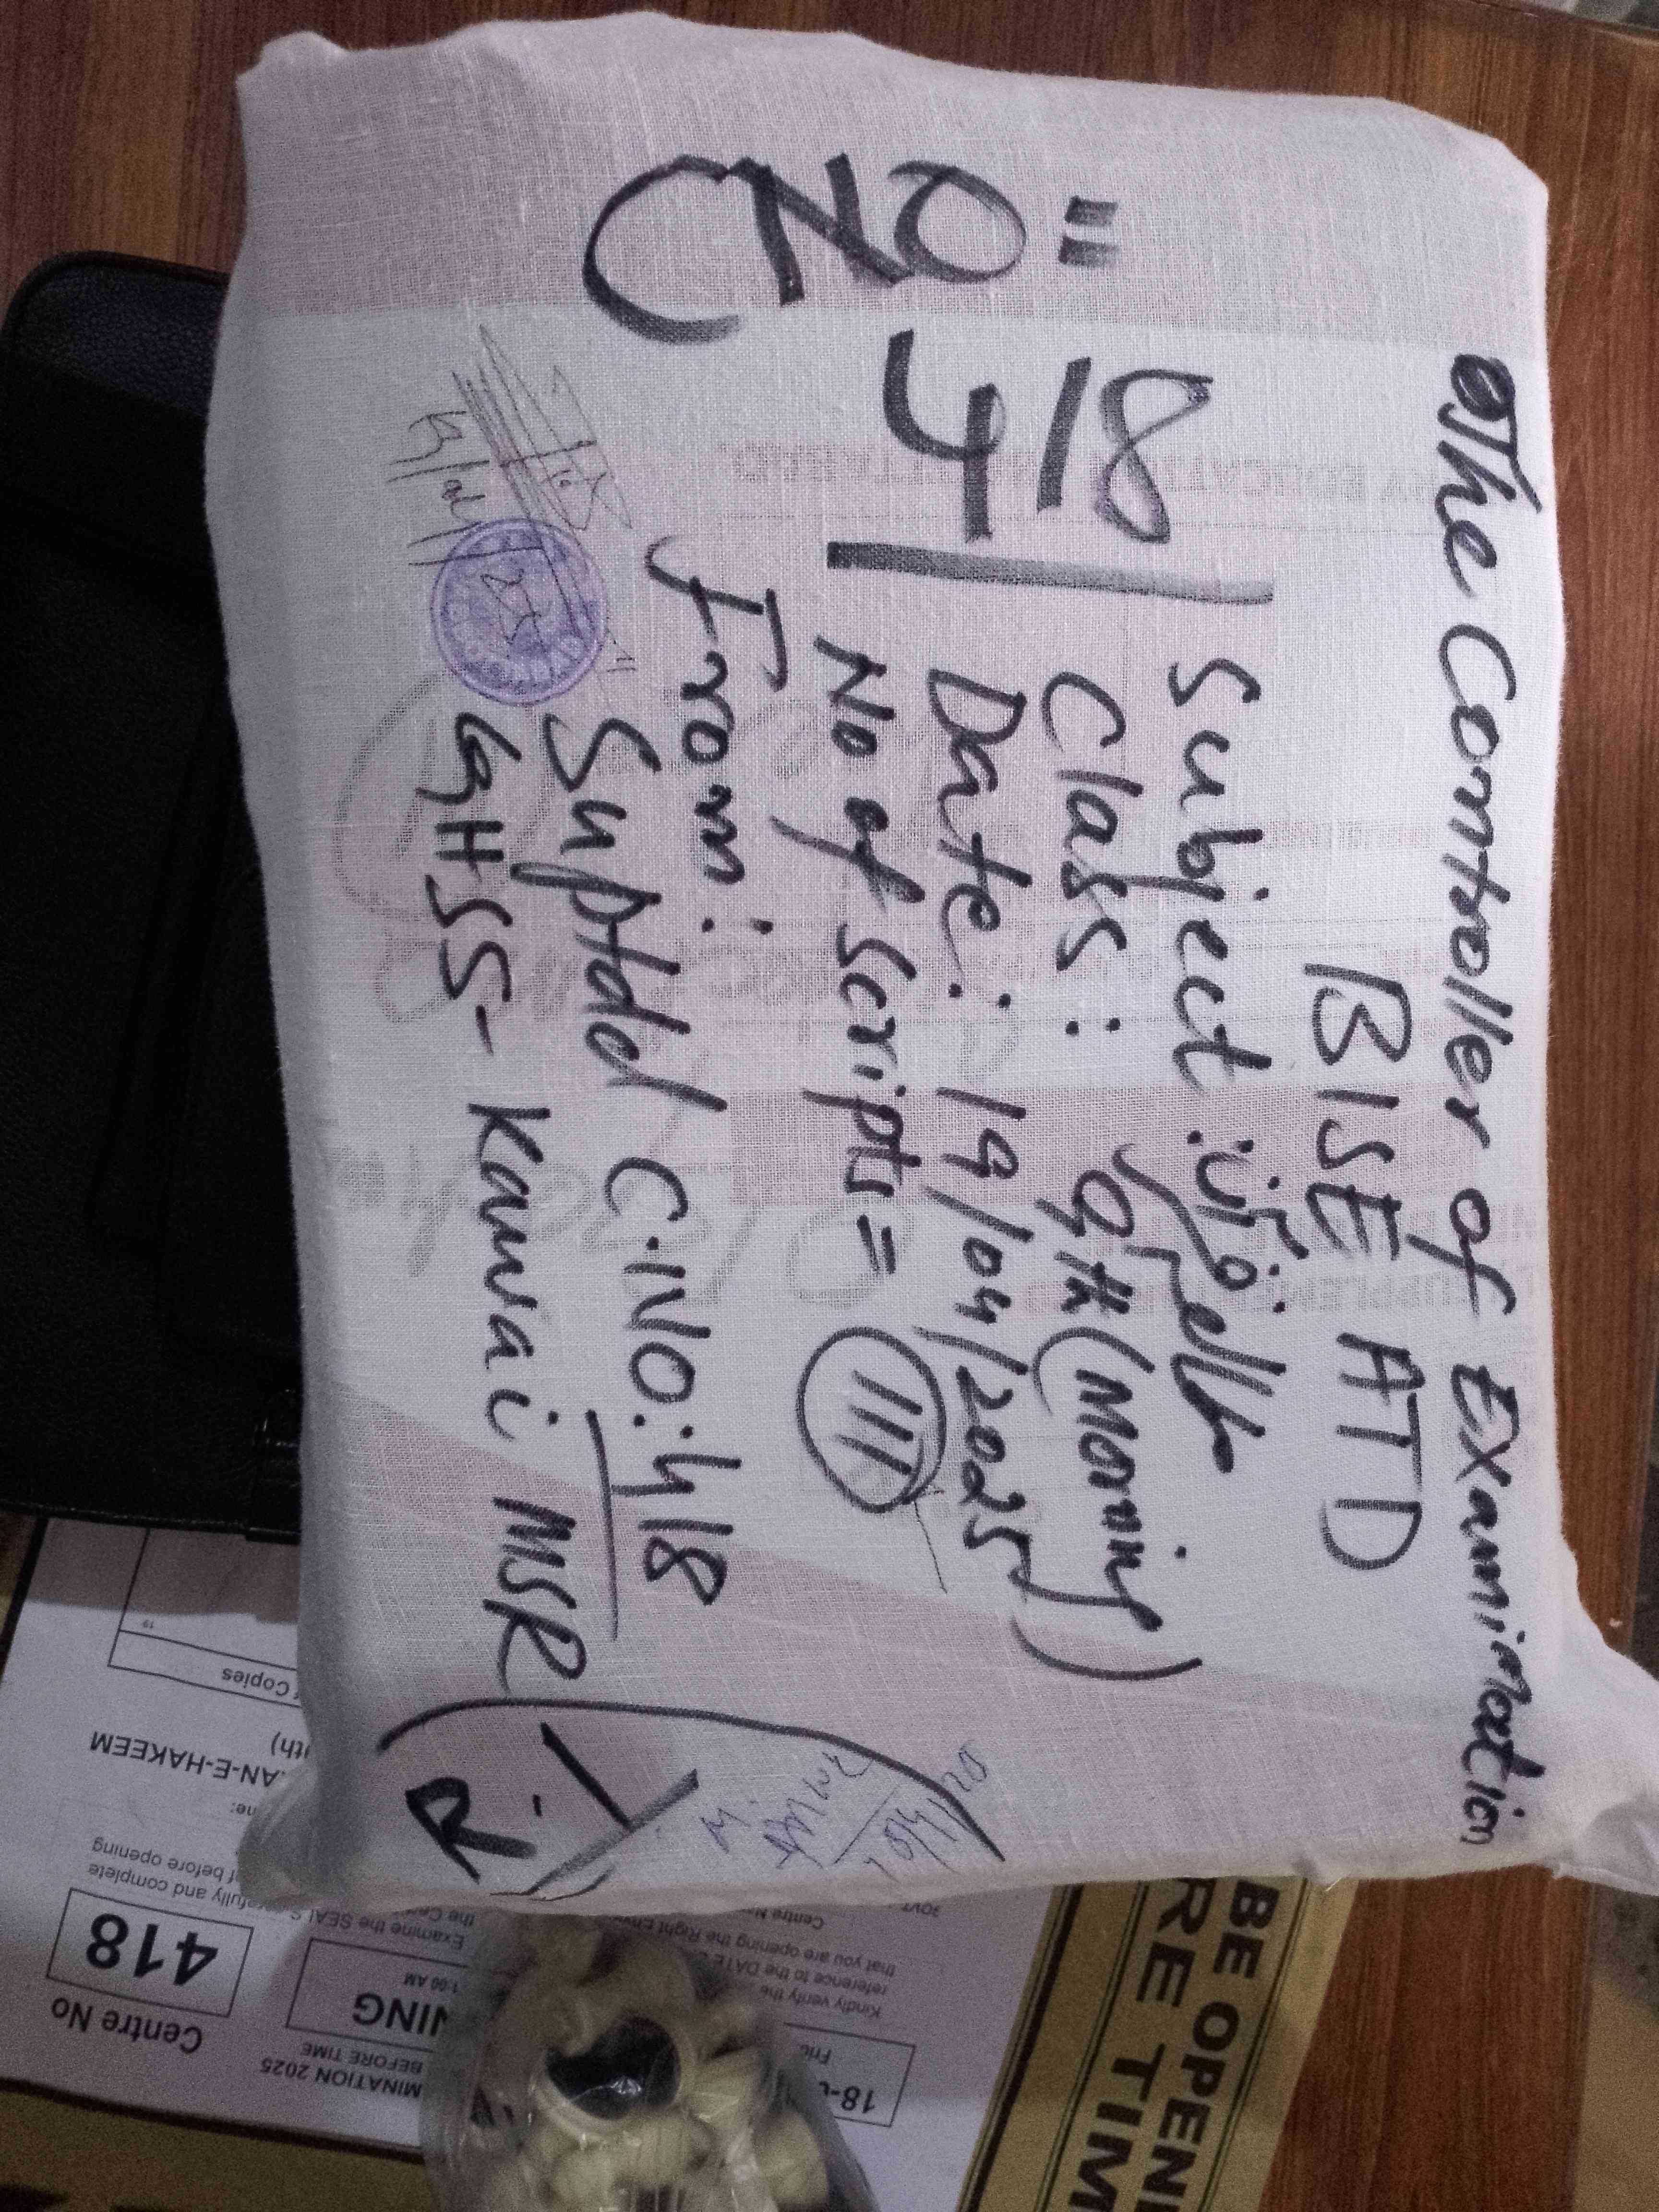 The Controller of Examination
BISE ATD
CNO =
418
Subject : مطالعہ قرآن
Class : 9th (Morning)
Date : 19/04/2025
No of Scripts = 111
From :
Suptdd C.NO. 418
GHSS - Kawai MSR
R-1
BE OPEN
RE TIM
MINATION 2025
BEFORE TIME
Centre No
418
NING
1:00 AM
Examine the SEALS
refully and complete
f before opening
AN-E-HAKEEM
Copies
19
18-
Fric
Kindly verify the
reference to the DATE
that you are opening the Right
Centre